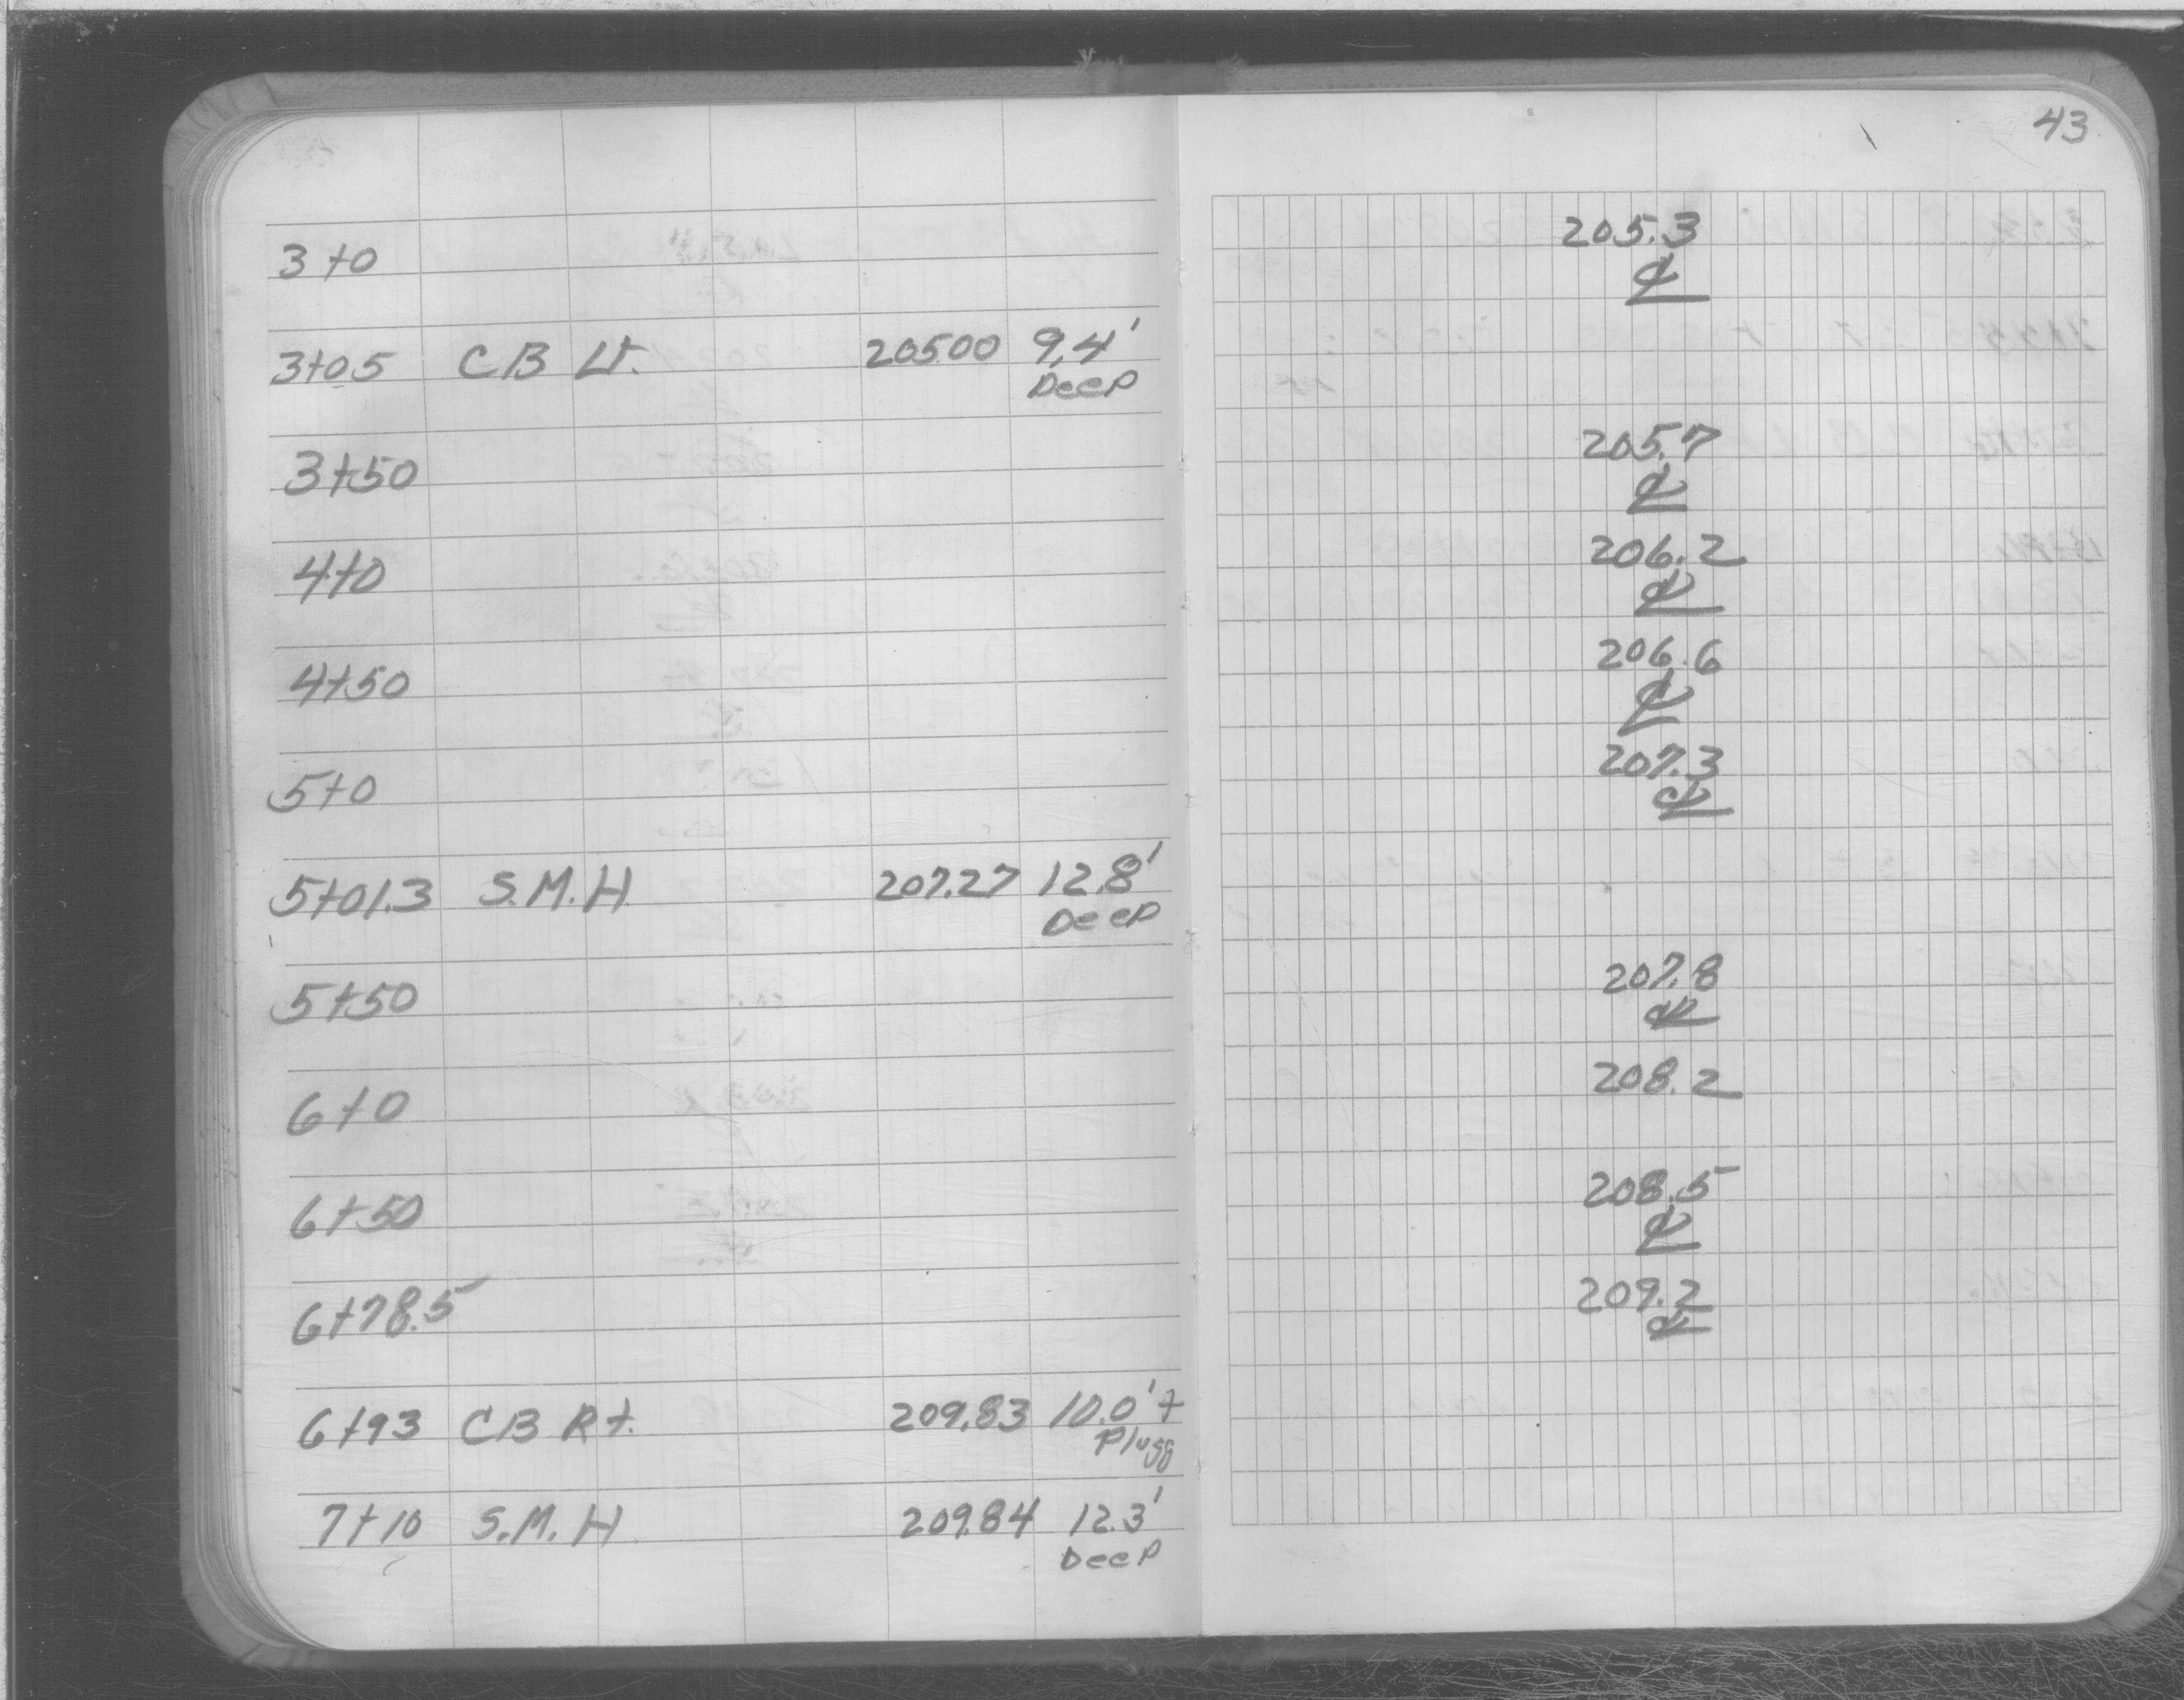 43
3+0 205.3
℄
3+05 C B Lt. 205.00 9.4'
Deep
3+50 205.7
℄
4+0 206.2
℄
4+50 206.6
℄
5+0 207.3
℄
5+01.3 S.M.H. 207.27 12.8'
Deep
5+50 207.8
℄
6+0 208.2
6+50 208.5
℄
6+78.5 209.2
℄
6+93 C B Rt. 209.83 10.0'+
Plugg
7+10 S.M.H. 209.84 12.3'
Deep